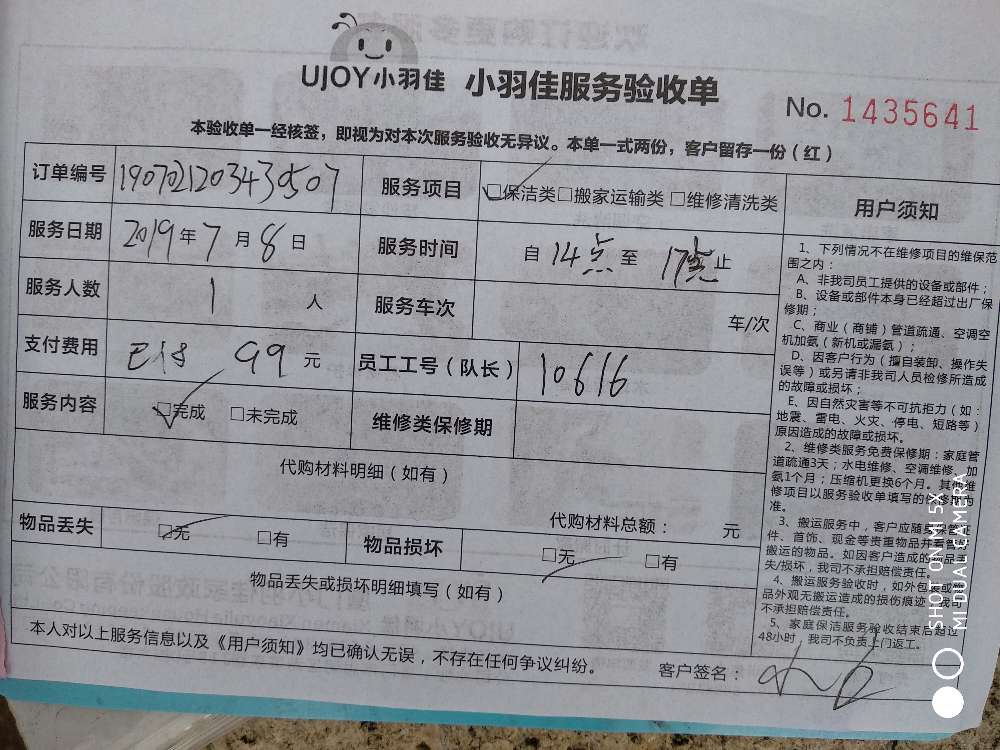 UJOY小羽佳 小羽佳服务验收单
No. 1435641
本验收单一经核签，即视为对本次服务验收无异议。本单一式两份，客户留存一份（红）
订单编号 190702120343 0507 服务项目 □保洁类□搬家运输类 □维修清洗类
服务日期 2019年7月8日 服务时间 自14点至17点止
服务人数 1 人 服务车次 车/次
支付费用 已付 99 元 员工工号（队长） 10616
服务内容 □完成 □未完成 维修类保修期
代购材料明细（如有）
代购材料总额： 元
物品丢失 □无 □有 物品损坏 □无 □有
物品丢失或损坏明细填写（如有）
本人对以上服务信息以及《用户须知》均已确认无误，不存在任何争议纠纷。 客户签名：
用户须知
1、下列情况不在维修项目的维保范
围之内：
A、非我司员工提供的设备或部件；
B、设备或部件本身已经超过出厂保
修期；
C、商业（商铺）管道疏通、空调空
机加氨（新机或漏氨）；
D、因客户行为（擅自装卸、操作失
误等）或另请非我司人员检修所造成
的故障或损坏；
E、因自然灾害等不可抗拒力（如：
地震、雷电、火灾、停电、短路等）
原因造成的故障或损坏。
2、维修类服务免费保修期：家庭管
道疏通3天；水电维修、空调维修、加
氨1个月；压缩机更换6个月。其他维
修项目以服务验收单填写的保修期为
准。
3、搬运服务中，客户应随身保管证
件、首饰、现金等贵重物品并看管好
搬运的物品。如因客户造成的物品丢
失/损坏，我司不承担赔偿责任。
4、搬运服务验收时，如外包装或物
品外观无搬运造成的损伤痕迹，我司
不承担赔偿责任。
5、家庭保洁服务验收结束后超过
48小时，我司不负责上门返工。
SHOT ON MI 5X
MI DUAL CAMERA